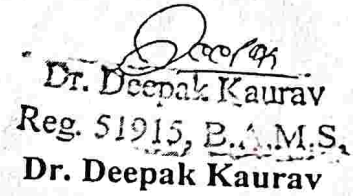 Dr. Deepak Kaurav
Reg. 51915, B.A.M.S.
Dr. Deepak Kaurav